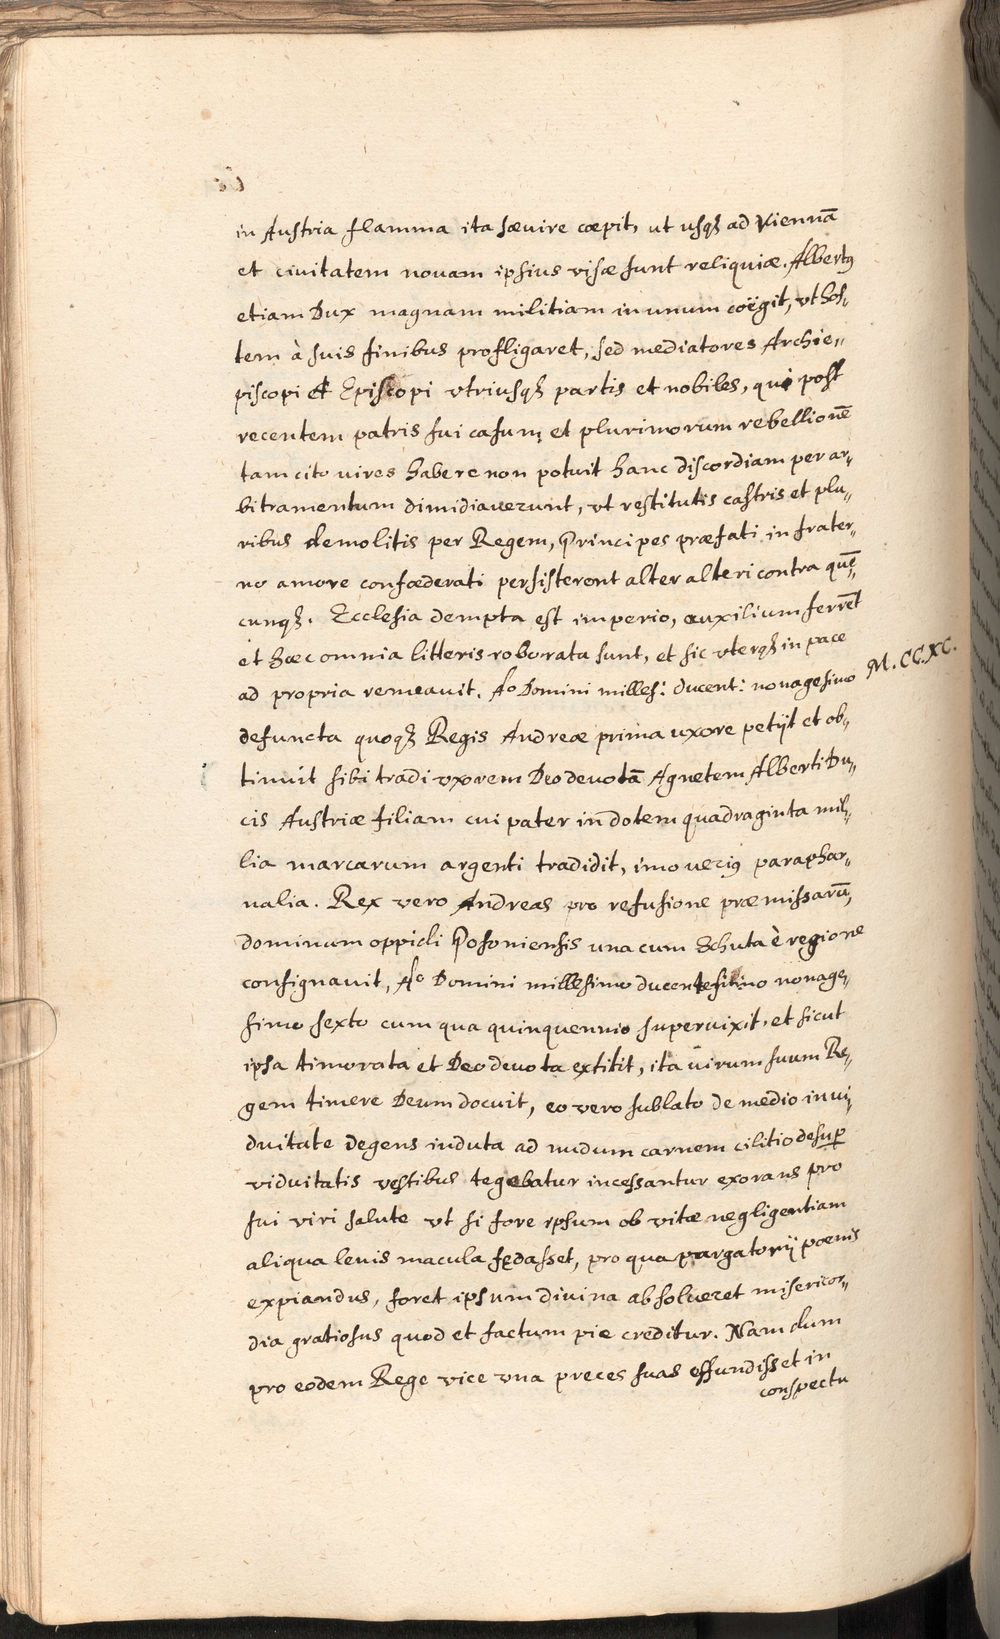 in Austria flamma ita sævire cæpit, ut usqꝫ ad Viennā
et civitatem novam ipsius visæ sunt reliquiæ. Albertꝰ
etiam Dux magnam militiam in unum coëgit, vt hos„
tem à suis finibus profligaret, sed mediatores Archie„
piscopi et Episcopi vtriusqꝫ partis et nobiles, qui post
recentem patris sui casum, et plurimorum rebellionē
tam cito vires habere non potuit hanc discordiam per ar„
bitramentum dimidiaverunt, vt restitutis castris et plu„
ribus demolitis per Regem, Principes præfati in frater„
no amore confœderati persisterent alter alteri contra quē„
cunqꝫ. Ecclesia dempta est imperio, auxilium ferrēt
et hæc omnia litteris roborata sunt, et sic vterqꝫ in pace
ad propria remeavit. Aº Domini milles: ducent: nonagesimo
M. CC. XC.
defuncta quoqꝫ Regis Andreæ prima uxore petijt et ob„
tinuit sibi tradi vxorem Deo devotā Agnetem Alberti Du„
cis Austriæ filiam cui pater in dotem quadraginta mil„
lia marcarum argenti tradidit, imo veriꝰ paraphar„
nalia. Rex vero Andreas pro refusione præmissarū,
dominum oppidi Posoniensis una cum Schuta è regione
consignavit, Aº Domini millesimo ducentesimo nonage„
simo sexto cum qua quinquennio supervixit, et sicut
ipsa timorata et Deo devota extitit, ita virum suum Re„
gem timere Deum docuit, eo vero sublato de medio in vi„
duitate degens induta ad nudum carnem cilitio desup̄
viduitatis vestibus tegebatur incessantur exorans pro
sui viri salute vt si fore ipsum ob vitæ negligentiam
aliqua levis macula fędasset, pro qua purgatorij poenis
expiandus, foret ipsum divina absolveret misericor„
dia gratiosus quod et factum pie creditur. Nam dum
pro eodem Rege vice vna preces suas effundisset in
conspectu